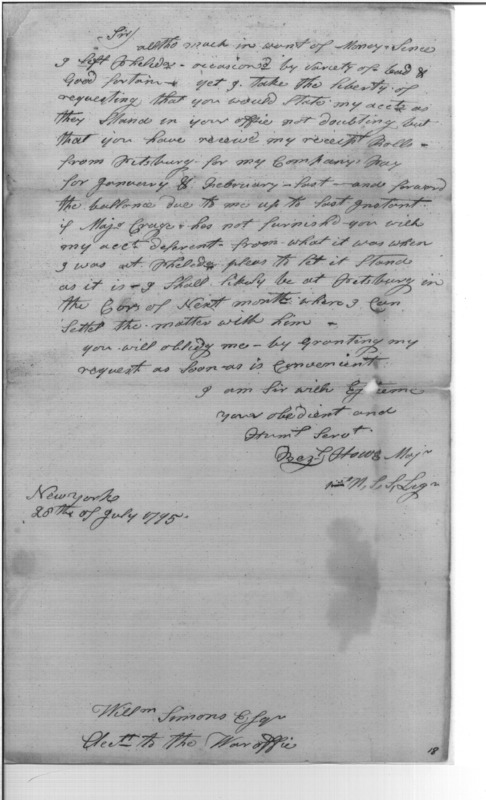 Sir/
altho mach in want of Money Since
I left Pheleda - occasiond by variety of bead &
Good fortain - yet I take the liberty of
requesting that you would State my accts as
they Stand in your office not doubting but
that you have receivd my receipt Rolls -
from Pitsburg for my Company Pay
for Janauery & February - last - and forward
the ballance due to me up to last Instant.
if Majr Crage has not furnished you with
my acct deferent from what it was when
I was at Pheleda pleas to let it Stand
as it is - I Shall likely be at Pitsburg in
the Cors of Next month where I Can
Settel the matter with him -
you will oblidg me - by Granting my
request as Soon as is Convenient
I am Sir with Esteeme
your obedient and
Huml Servt
Bezl Howe Majr
U. S. Legn
New York
28th of July 1795.
Willm Simons Esqr
Acctt to the War office
18